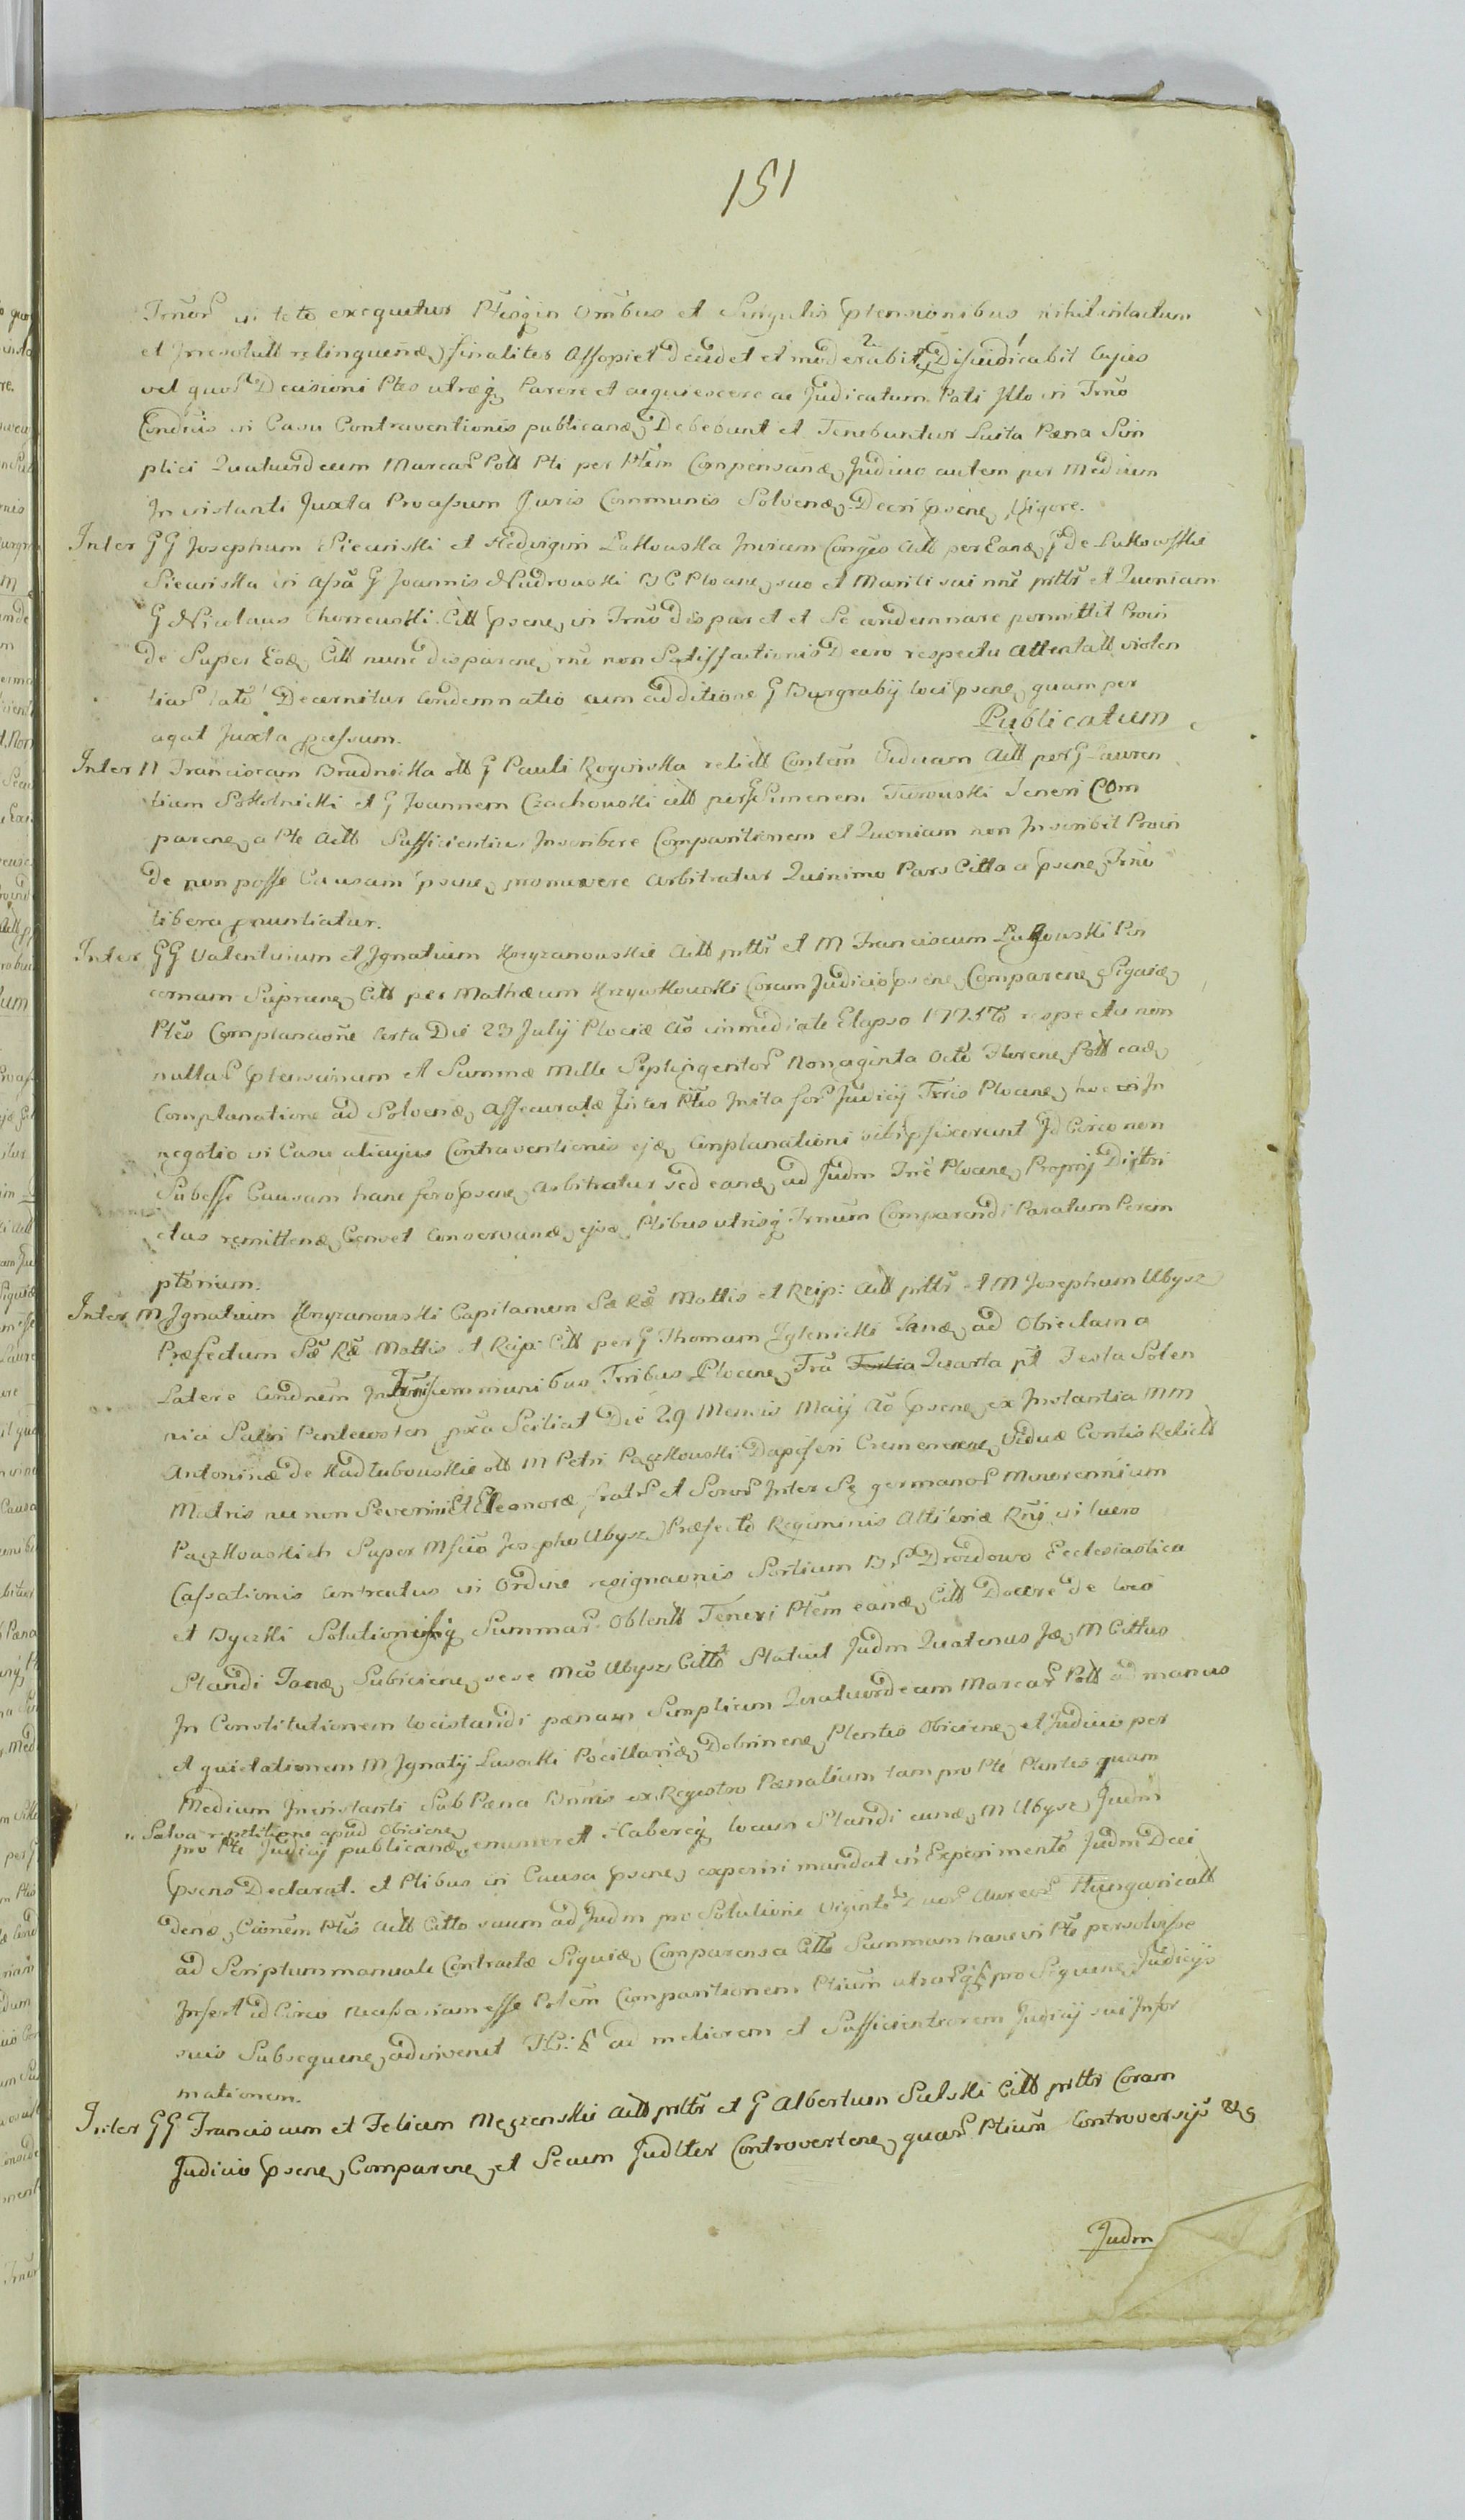 151
Trnor in toto exequetur Ptisqin omibus et Singulis ptensionibus nihil intactum
et Irresolutt relinquend, finaliter assopiet decidet et moderabitq, Disiudicabit Cujus
vel quor Decisioni Ptes utraeq, Parere et acquiescere ac Judicatum Pati Illo in Trno
Condicis in Casu Contraventionis publicand, Debebunt et Tenebuntur Luita Paena Sim
plici Quatuordecim Marcar Poll Pti per Ptem Compensand, Judicio autem per Medium
In instanti Juxta Processum Juris Communis Solvend, Decri psene, Vigore.
Inter GG Josephum Siecinski et Hedvigim Lukowska Invicem Conges Actt per Eand, G de Lukowskie
Siecinska in Assa G Joannis Nudrowski B C Plocane, suo et Mariti sui nne prttr et Quoniam
G Nicolaus Chorzewski Citt psene, in Trno disparet et Se condemnare permittit Proin
de Super Eod, Citt nunc disparene, rne non Satisfactionis Decro respectu Attentatt violen
tiar lato Decernitur Condemnatio cum additione G Burgrabij loci psene, quam per
agat Juxta pcessum. Publicatum
Inter N Franciscam Brudnicka ott G Pauli Rogoinska relictt Contem Viduam Actt per G Lauren
tium Sokolnicki et G Joannem Czachowski citt per G Simenem Turowski Teneri Com
parene, a Pte Actt Sufficientius Inscribere Comparitionem et Quoniam non Inscribit Proin
de non posse Causam psene, promovere arbitratur Quinimo Pars Citta a psene, Trno
libera pnuntiatur.
Inter GG Valentinum et Ignatium Kryzanowskie Actt prttr et M Franciscum Lasowski Pin
cernam Siprene, Citt per Mathaeum Krzywkowski Coram Judicio psene, Comparene, Siquid,
Ptes Complanaone certa Die 23 Julij Plociae Ao immediate Elapso 1775to respectu non
nullar ptensionum et Summae Mille Septingentor Nonaginta octo Floren, Poll ead,
Complanatione ad Solvend, Assecuratae Inter Ptes Inita for Judicij Terris Plocane, hoc in In
negotio in Casu alicujus Contraventionis ejd, Complanationi sibi pfixerunt Id Circo non
Subesse Causam hanc foro psene, arbitratur sed eand, ad Judm Trre Plocane, Proprij Distri
ctus remittend, Censet Conservand, ejsd, Ptibus utrisq Trnum Comparendi Paratum Perem
ptorium.
Inter M Ignatium Kryzanowski Capitaneum Sae Rae Mattis et Reip: Actt prttr et M Josephum Ubysz
Praefectum Sae Rae Mattis et Reip: Citt per G Thomam Zglenicki Tand, ad Obiectam a
Latere Condnem In Communibus Trribus Plocane, Fra Quarta pt Festa Solen
nia Sacri Pentecosten pxa Scilicet Die 29 Mensis Maij Ao psene, ex Instantia MM
Antoninae de Kadlubowskie ott M Petri Paczkowski Dapiferi Cremenene, Viduae Contis Relictt
Matris nec non Severini et Eleonorae fratr et Soror Inter Se germanor Minorennium
Paczkowskich Super Mfico Josepho Ubysz Praefecto Regiminis Attileriae Rni in Lucro
Cassationis Contractus in ordine resignaonis Sortium Br Drozdowo Ecclesiastica
et Byczki Solutionisq Summar Obtentt Teneri Ptem eand, Citt Docere de loco
Standi Tand, Subiciene, sese Mco Ubysz Citto Statuit Judm Quatenus Id, M Cittus
In Constitutionem locistandi paenam Simplicem Quatuordecim Marcar Poll ad manus
et quietationem M Ignatij Lasocki Pocillarid, Dobrinene, Ptentis Obiciene, et Judicio per
Medium Ininstanti Sub Paena Bnnis ex Regestro Paenalium tam pro Pte Ptentis quam
" Salva repetitione apud Obiciene,
pro Pte Judicij publicand, enumeret Habereq locum Standi eund, M Ubysz Judm
psens Declarat. et Ptibus in Causa psene, experiri mandat in Experimento Judm Deci
dend, Cionem Ptis Actt Citto suum ad Judm pro Solutione Viginti Duor Aureor Hungaricatt
ad Scriptum manuale Contractae Siquid, Comparens a Citto Summam hanc in Pte persolvisse
Infert id Circo necessariam esse Potem Comparitionem Ptium utrarq pro Sequene, Judicijs
suis Subsequene, adinvenit ad meliorem et Sufficientiorem Judicij sui Infor
mationem.
Inter GG Franciscum et Felicem Meszenskie Actt prttr et G Albertum Sulski Citt prttr Coram
Judicio psene, Comparene, et Secum Judtter Controvertene, quar Ptium Controversijs
Judm